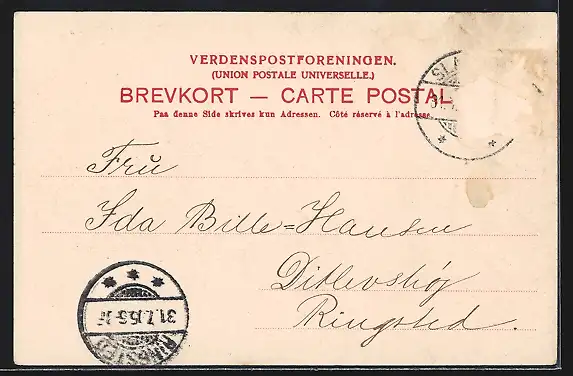 VERDENSPOSTFORENINGEN.
(UNION POSTALE UNIVERSELLE.)
BREVKORT — CARTE POSTAL
Paa denne Side skrives kun Adressen. Côté réservé à l'adresse.
Frŭ
Ida Bille=Hansen
Ditlevshöj
Ringsted.
RINGSTED